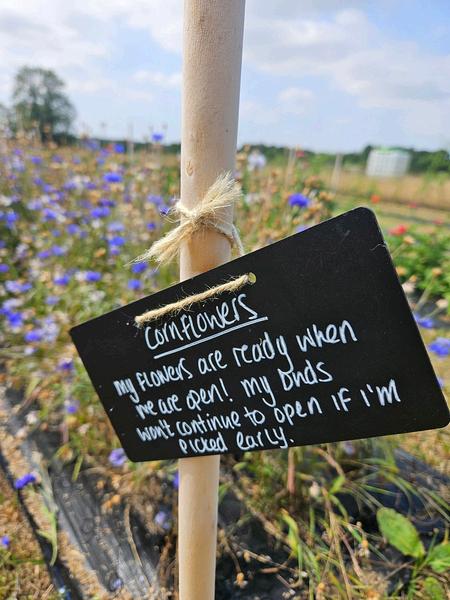 cornflowers
my flowers are ready when
we are open! my buds
won't continue to open if I'm
picked early.